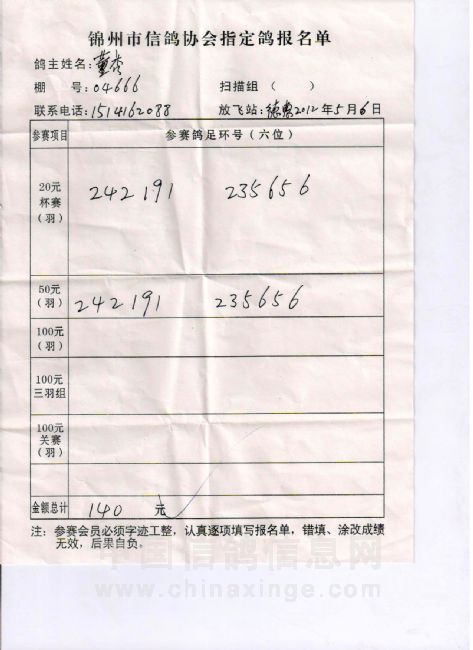 锦州市信鸽协会指定鸽报名单
鸽主姓名:董杰
棚 号:04666 扫描组 ( )
联系电话:1514162088 放飞站:德惠2012年5月6日
参赛项目 参赛鸽足环号(六位)
20元
杯赛
(羽)
242191 235656
50元
(羽)
242191 235656
100元
(羽)
100元
三羽组
100元
关赛
(羽)
金额总计 140 元
注:参赛会员必须字迹工整,认真逐项填写报名单,错填、涂改成绩
无效,后果自负。
中国信鸽信息网
www.chinaxinge.com